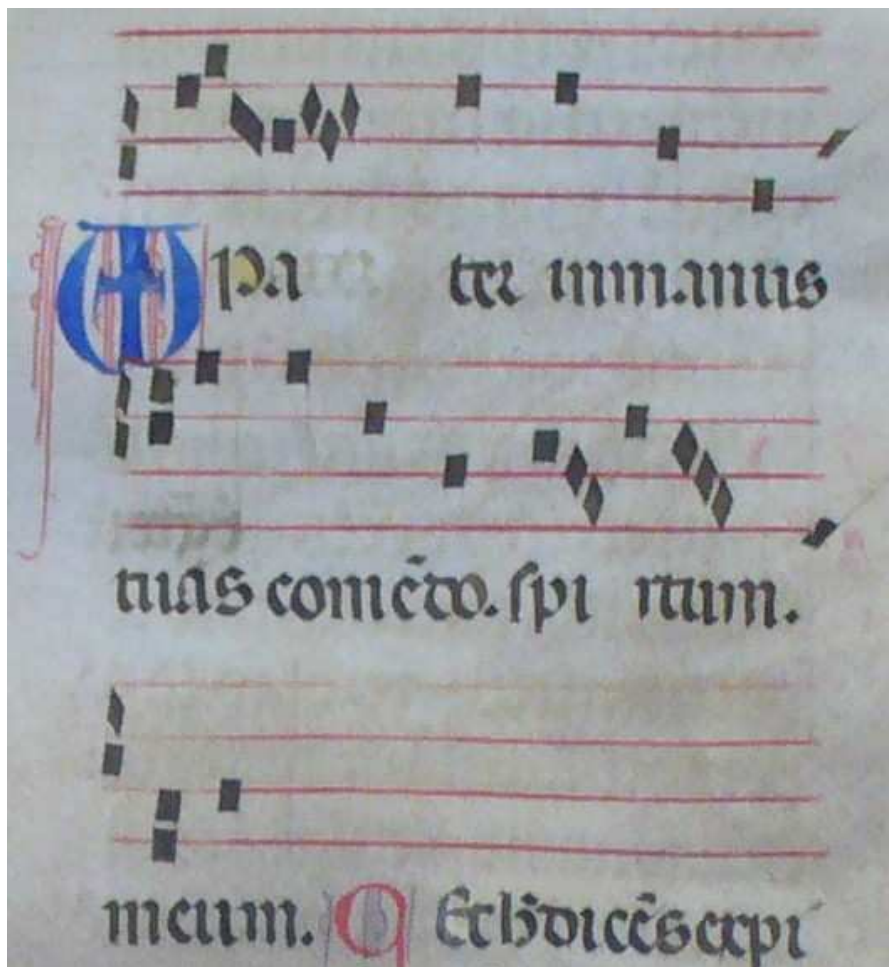 pa ter in manus
tuas comēdo. spi ritum.
meum. Et h̄ dicēs expi